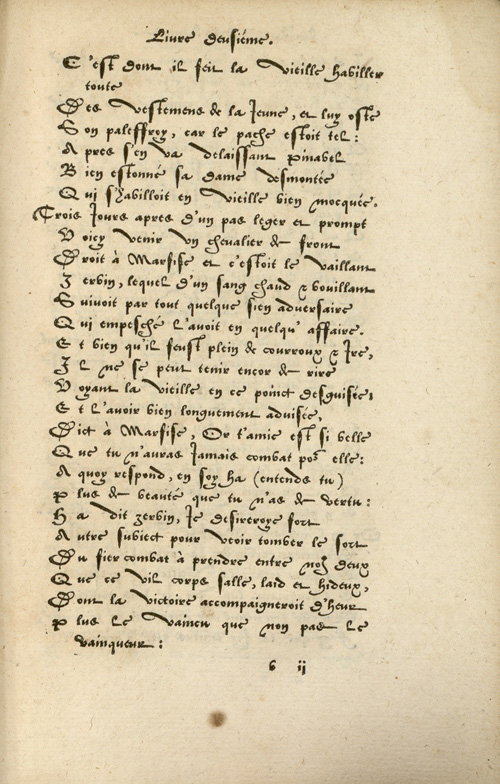 Livre deusiéme.
C'est dont il feit la vieille habiller
toute
Des vestemens de la Jeune, et luy oste
Son paleffroy, car le pache estoit tel:
Apres s'en va delaissant pinabel
Bien estonné sa dame desmontée
Qui s'habilloit en vieille bien mocquée.
Trois Jours apres d'un pas leger et prompt
Voicy venir un chevalier de front
Droit à Marfise et c'estoit le vaillant
Zerbin, lequel d'un sang chaud & bouillant
Suivoit par tout quelque sien adversaire
Qui empesché l'avoit en quelqu' affaire.
Et bien qu'il feust plein de courroux & Ire,
Il ne se peut tenir encor de rire
Voyant la vieille en ce poinct desguisée:
Et l'avoir bien longuement advisée,
Dict à Marfise, Or t'amie est si belle
Que tu n'auras Jamais combat por elle:
A quoy respond, en soy ha (entends tu)
Plus de beauté que tu n'as de vertu:
Ha dit zerbin, Je desireroye fort
Autre subiect pour veoir tomber le sort
Du fier combat à prendre entre noz deux
Que ce vil corps salle, laid et hideux,
Dont la victoire accompaigneroit d'heur
Plus le vaincu que non pas le
vainqueur:
6 ij